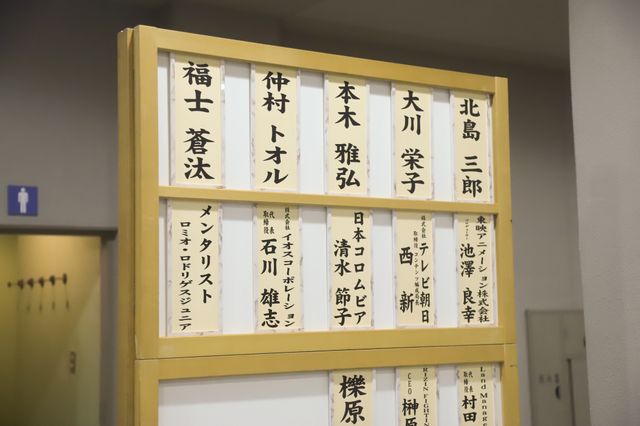 北島 三郎
大川 栄子
本木 雅弘
仲村 トオル
福士 蒼汰
東映アニメーション株式会社
池澤 良幸
株式会社 テレビ朝日
西 新
日本コロムビア
清水 節子
株式会社 イオスコーポレーション
代表取締役 石川 雄志
メンタリスト
ロミオ・ロドリゲスジュニア
Land Manage
代表取締役 村田
RIZIN FIGHTIN
CEO 榊原
櫟原